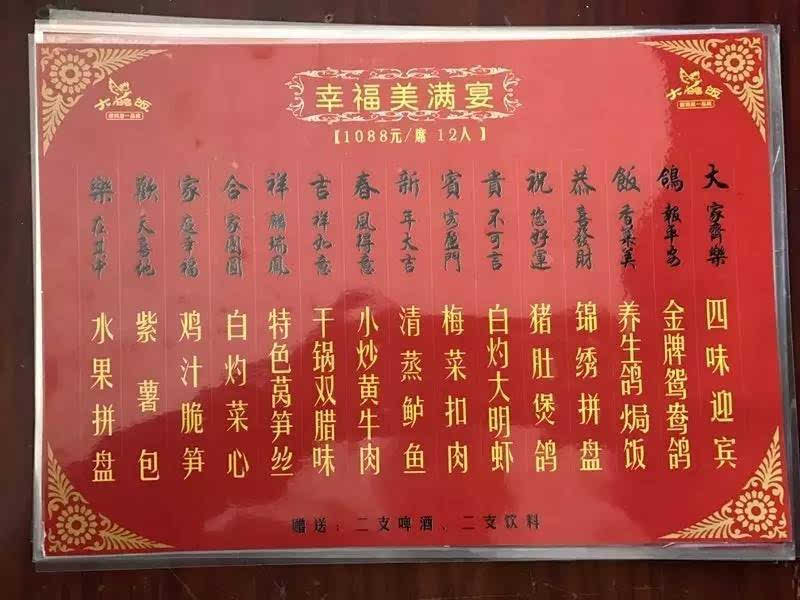 大鸽饭
大鸽饭
幸福美满宴
【1088元/席 12人】
大家齊樂 四味迎宾
鴿報平安 金牌鸳鸯鸽
飯香菜美 养生鸽焗饭
恭喜發財 锦绣拼盘
祝您好運 猪肚煲鸽
貴不可言 白灼大明虾
賓客盈門 梅菜扣肉
新年大吉 清蒸鲈鱼
春風得意 小炒黄牛肉
吉祥如意 干锅双腊味
祥麟瑞鳳 特色莴笋丝
合家團圓 白灼菜心
家庭幸福 鸡汁脆笋
歡天喜地 紫薯包
樂在其中 水果拼盘
赠送：二支啤酒、二支饮料